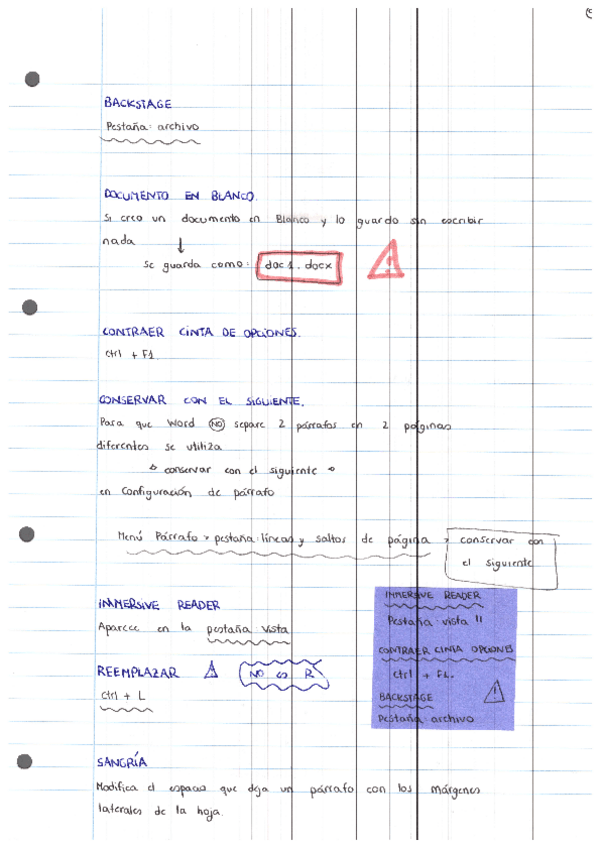 BACKSTAGE
Pestaña: archivo
DOCUMENTO EN BLANCO.
Si creo un documento en Blanco y lo guardo sin escribir
nada ↓
se guarda como: doc1.docx
CONTRAER CINTA DE OPCIONES.
ctrl + F1.
CONSERVAR CON EL SIGUIENTE.
Para que Word NO separe 2 párrafos en 2 paginas
diferentes se utiliza
conservar con el siguiente
en configuración de párrafo
Menú Párrafo > pestaña: líneas y saltos de página > conservar con
el siguiente
IMMERSIVE READER
Aparece en la pestaña vista
REEMPLAZAR ⚠ NO es R
ctrl + L
IMMERSIVE READER
Pestaña: vista !!
CONTRAER CINTA OPCIONES
ctrl + F1.
BACKSTAGE
Pestaña: archivo
SANGRÍA
Modifica el espacio que deja un párrafo con los márgenes
laterales de la hoja.